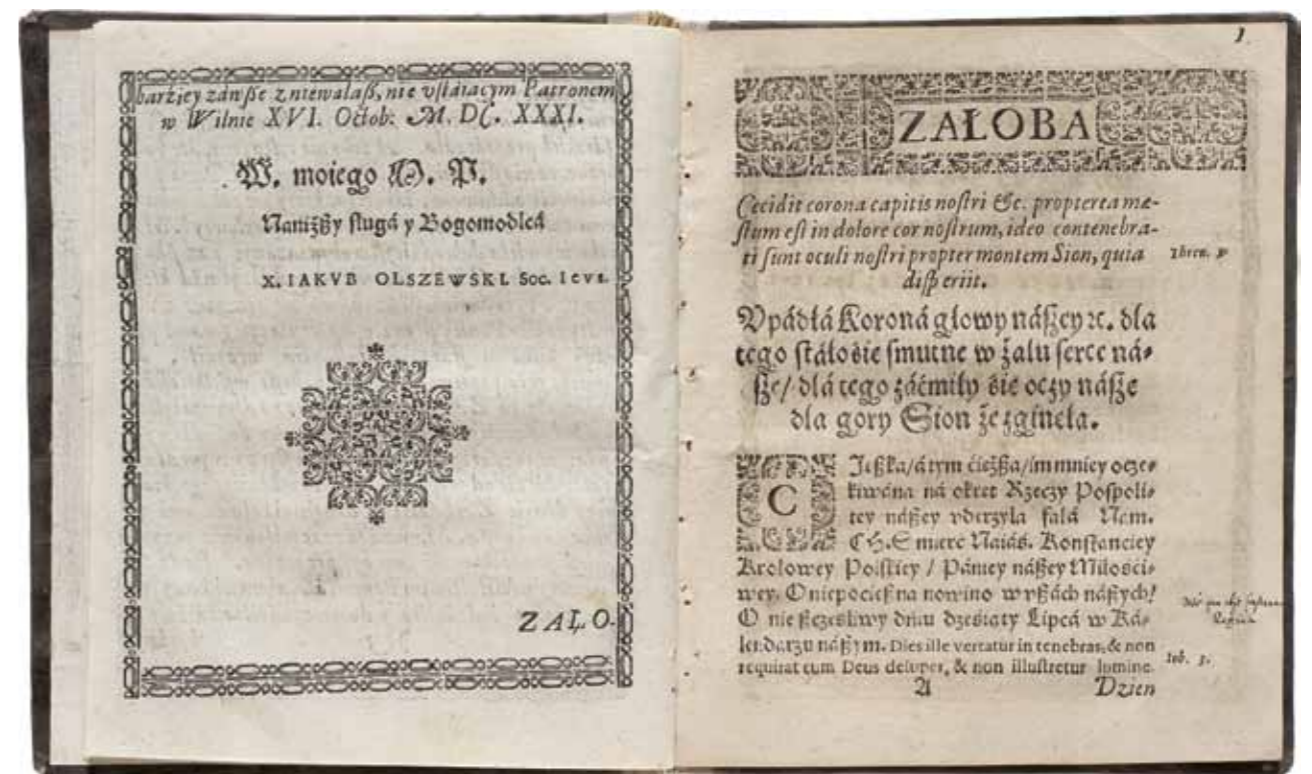 barziey záwſze zniewalaſz, nie vſtáiącym Patronem
w Wilnie XVI. Octob: M. DC. XXXI.
W. moiego M. P.
Naniżſzy ſlugá y Bogomodlcá
X. IAKVB OLSZEWSKI. Soc. Ieve.
ZAŁO-
1.
ZAŁOBA
Cecidit corona capitis noſtri &c. propterea mæ-
ſtum eſt in dolore cor noſtrum, ideo contenebra-
ti ſunt oculi noſtri propter montem Sion, quia
diſperiit.
Thren. v
Vpádłá Koroná głowy náſzey ꝛc. dla
tego ſtáłośie ſmutne w żalu ſerce ná-
ſze/ dlá tego záćmiły śie oczy náſze
dla gory Sion że zginełá.
CIęſzka/ á tym ćiężſza/ im mniey ocze-
kiwána ná okręt Rzeczy Poſpoli-
tey náſzey vderzyla fálá Nam.
CH. Smierć Naiáś. Konſtanciey
Krolowey Polſkiey / Pániey náſzey Miłośći-
wey. O niepocieſzna nowino w vſzách náſzych!
O nie ſzczęśliwy dniu dzieśiąty Lipcá w Ká-
lendarzu náſzym. Dies ille vertatur in tenebras, & non
requirat eum Deus deſuper, & non illuſtretur lumine.
Iob. 3.
A Dzien